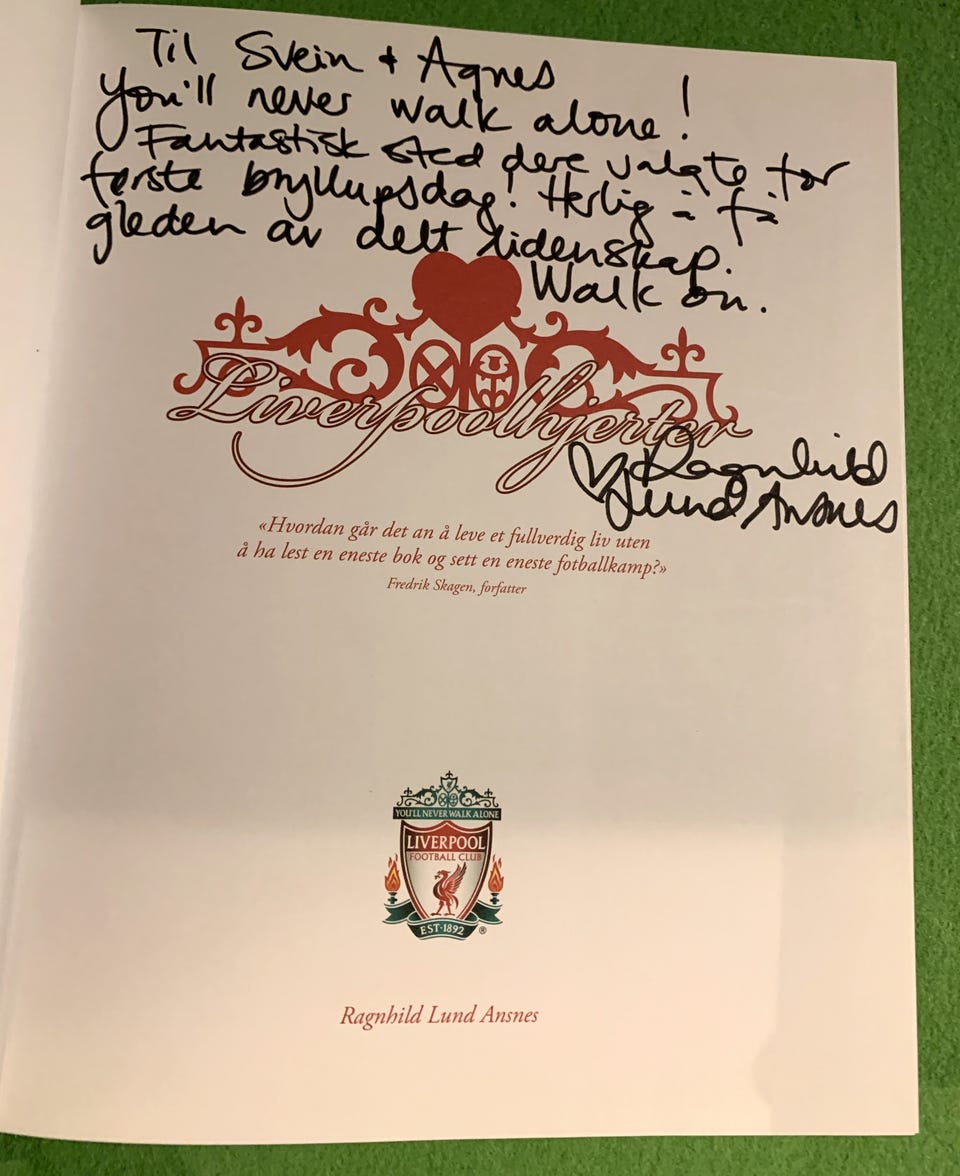 Til Svein + Agnes
You'll never walk alone!
Fantastisk sted dere valgte for
første bryllupsdag! Herlig å få
gleden av delt lidenskap.
Walk on.
Liverpoolhjerter
Ragnhild
Lund Ansnes
«Hvordan går det an å leve et fullverdig liv uten
å ha lest en eneste bok og sett en eneste fotballkamp?»
Fredrik Skagen, forfatter
YOU'LL NEVER WALK ALONE
LIVERPOOL
FOOTBALL CLUB
EST·1892 ®
Ragnhild Lund Ansnes